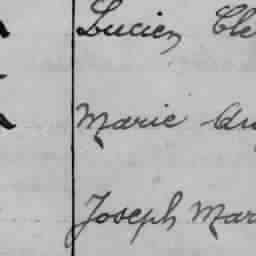 Lucien Cle
Marie Au
Joseph Mar